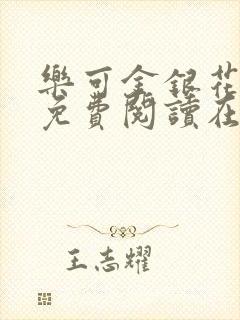 樂可金銀花
免費閱讀在
王志耀